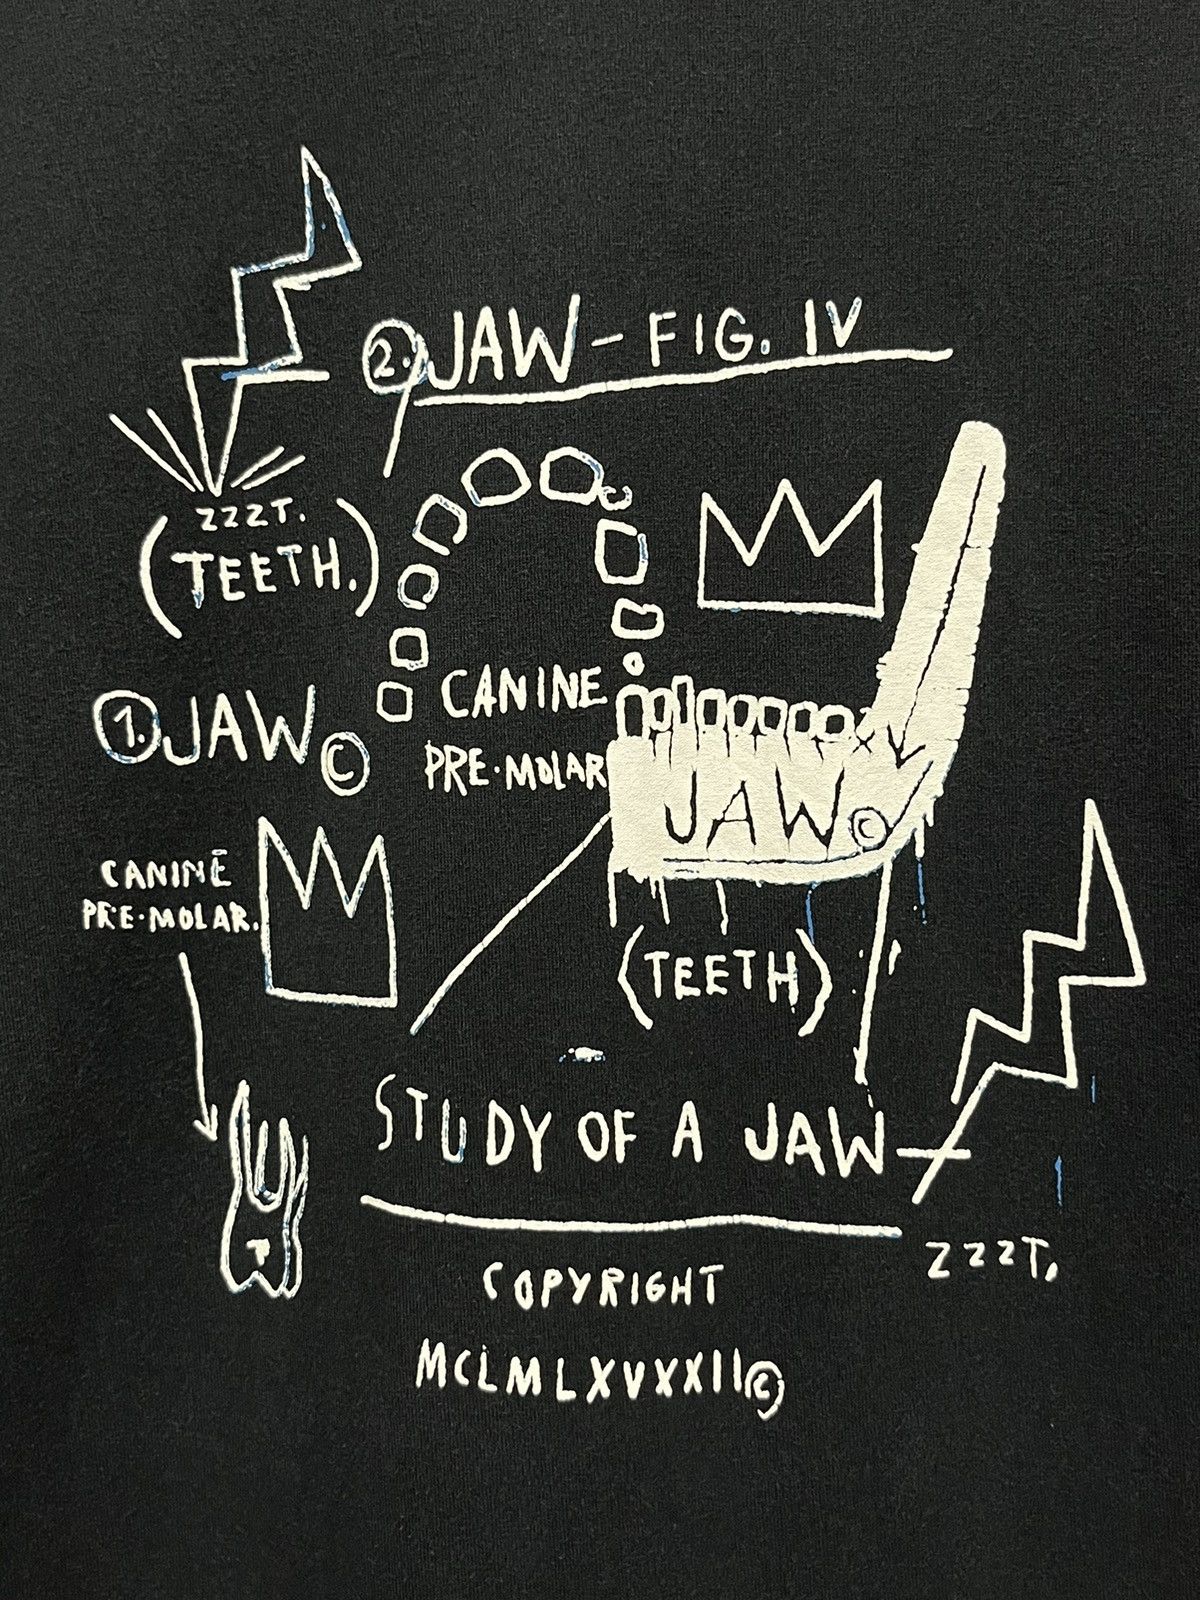 2. JAW - FIG. IV
ZZZT.
(TEETH.)
CANINE
PRE·MOLAR
1. JAW ©
JAW ©
CANINE
PRE·MOLAR.
(TEETH)
STUDY OF A JAW—
ZZZT.
COPYRIGHT
MCLMLXVXXII ©